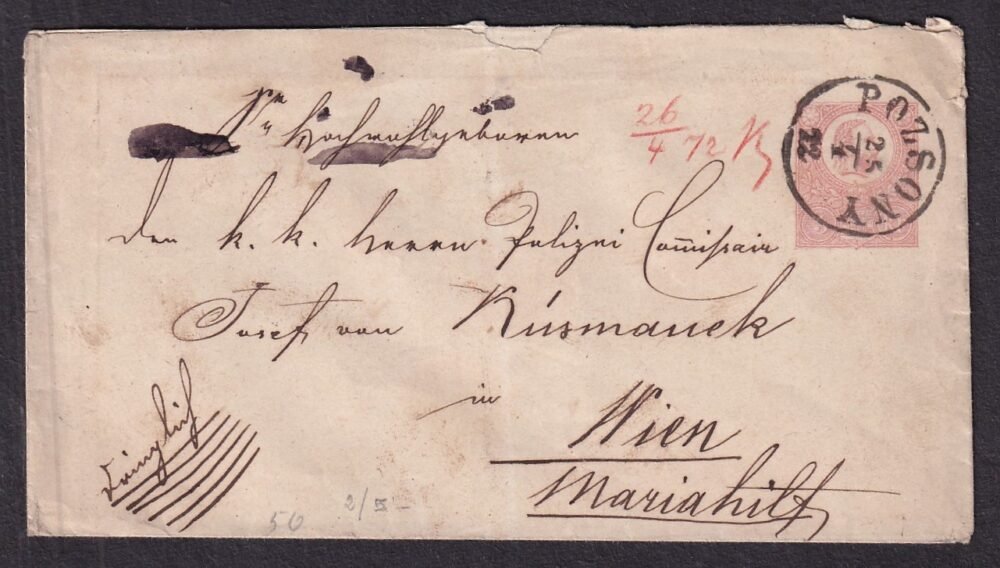 Sr Hochwohlgeboren
26/4 72
POZSONY
25/4
72
den k. k. Herrn Polizei Com̅issair
Josef von Kúsmanek
in
Wien
Mariahilf
Dringlich
2/II –
50